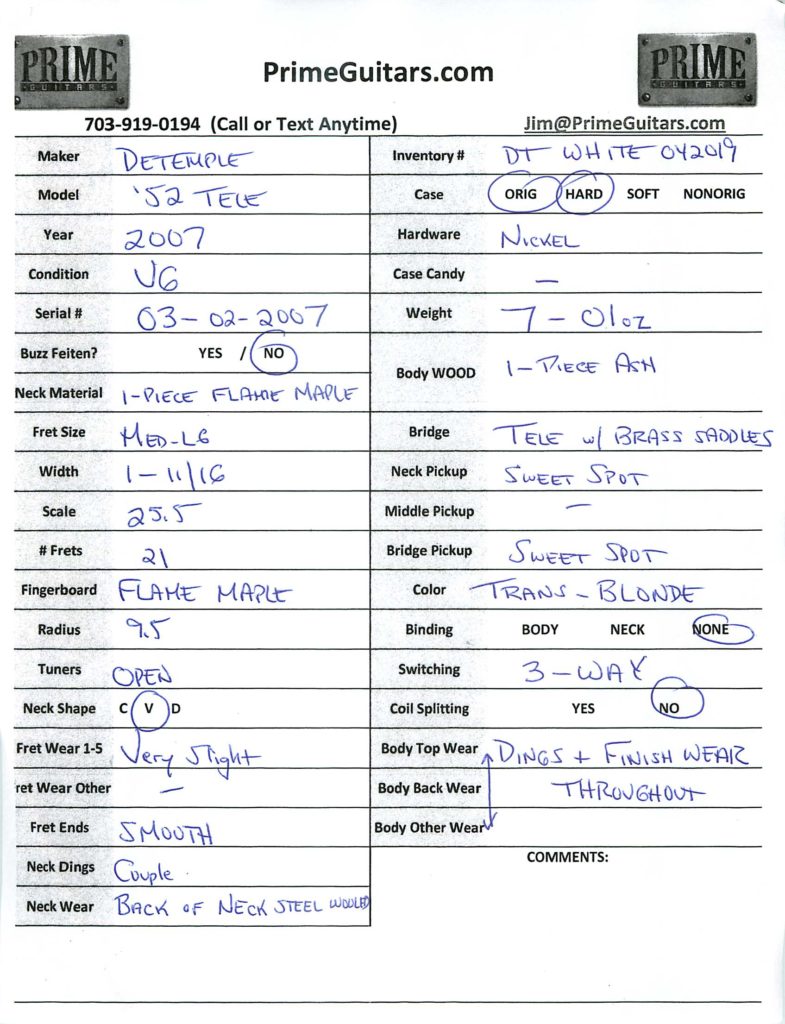 PRIME
GUITARS
PrimeGuitars.com
PRIME
GUITARS
703-919-0194 (Call or Text Anytime)
Jim@PrimeGuitars.com
Maker DETEMPLE
Model '52 TELE
Year 2007
Condition VG
Serial # 03-02-2007
Buzz Feiten? YES / NO
Neck Material 1-PIECE FLAME MAPLE
Fret Size MED-LG
Width 1-11/16
Scale 25.5
# Frets 21
Fingerboard FLAME MAPLE
Radius 9.5
Tuners OPEN
Neck Shape C V D
Fret Wear 1-5 Very Slight
ret Wear Other —
Fret Ends SMOOTH
Neck Dings Couple
Neck Wear BACK OF NECK STEEL WOOLED
Inventory # DT WHITE 042019
Case ORIG HARD SOFT NONORIG
Hardware NICKEL
Case Candy —
Weight 7-01oz
Body WOOD 1-PIECE ASH
Bridge TELE w/ BRASS SADDLES
Neck Pickup SWEET SPOT
Middle Pickup —
Bridge Pickup SWEET SPOT
Color TRANS-BLONDE
Binding BODY NECK NONE
Switching 3-WAY
Coil Splitting YES NO
Body Top Wear DINGS + FINISH WEAR
Body Back Wear THROUGHOUT
Body Other Wear
COMMENTS: